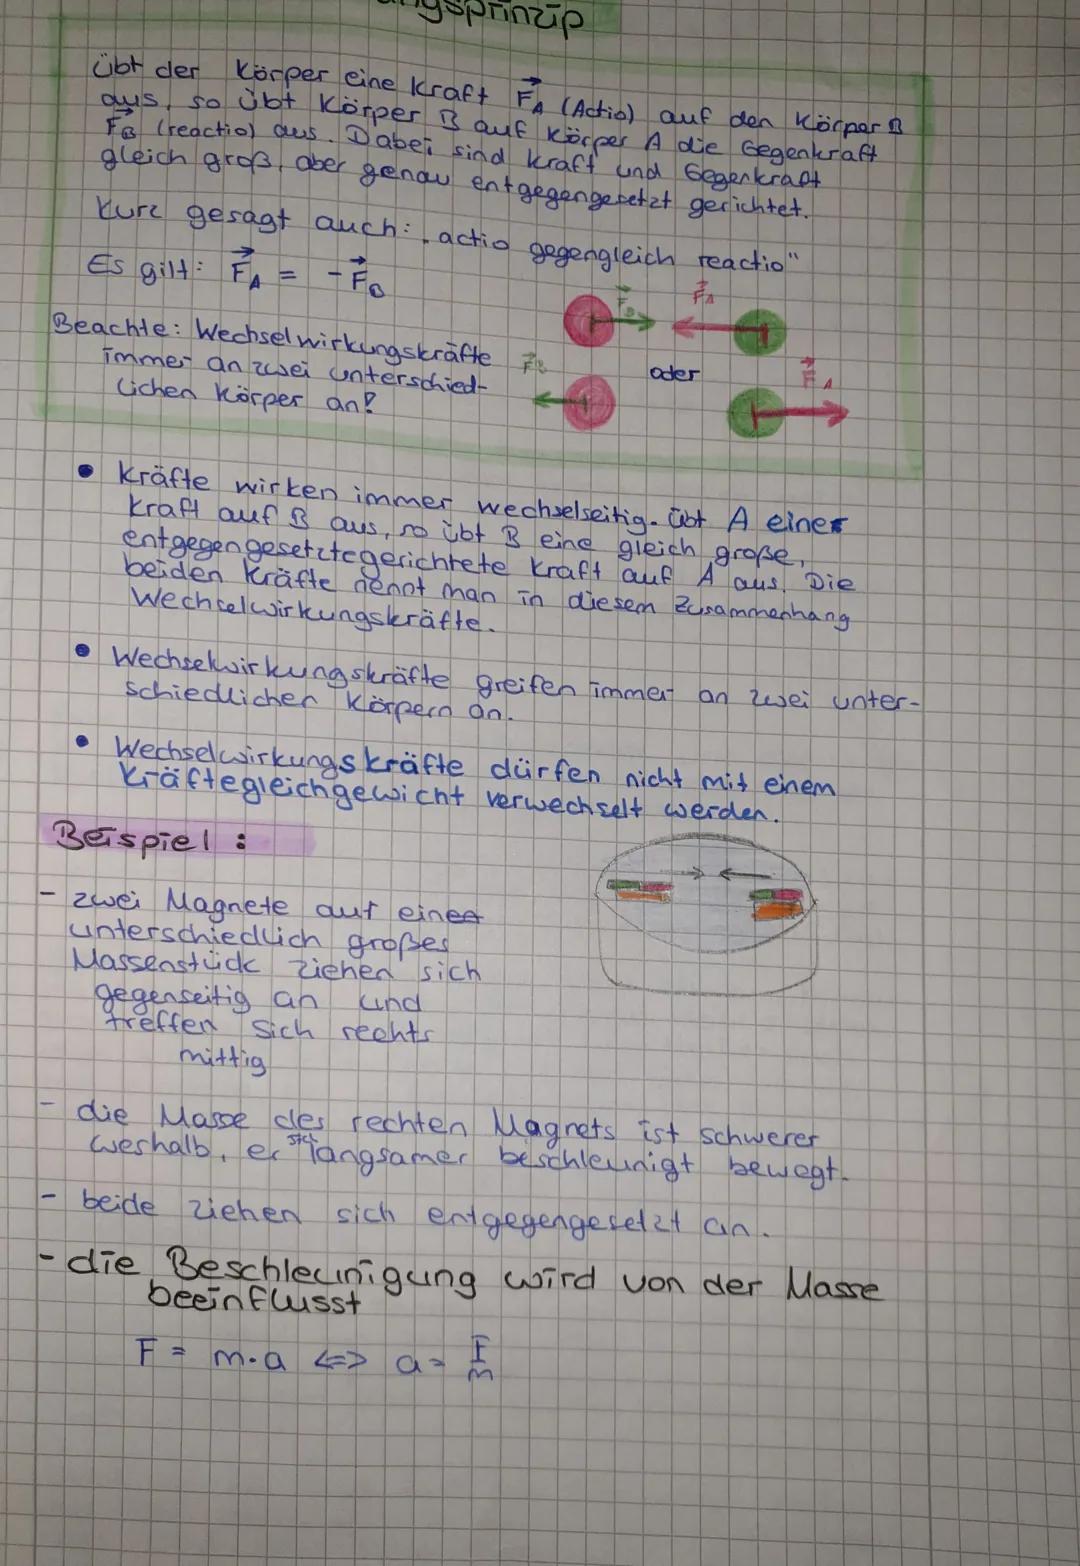 ungsprinzip
übt der Körper eine Kraft F⃗A (Actio) auf den Körper B
aus, so übt Körper B auf Körper A die Gegenkraft
F⃗B (reactio) aus. Dabei sind Kraft und Gegenkraft
gleich groß, aber genau entgegengesetzt gerichtet.
Kurz gesagt auch: „actio gegengleich reactio"
Es gilt: F⃗A = -F⃗B
F⃗B F⃗A
Beachte: Wechselwirkungskräfte
immer an zwei unterschied-
lichen Körper an!
F⃗B oder F⃗A
• Kräfte wirken immer wechselseitig. Übt A einer
Kraft auf B aus, so übt B eine gleich große,
entgegengesetztegerichtete Kraft auf A aus. Die
beiden Kräfte nennt man in diesem Zusammenhang
Wechselwirkungskräfte.
• Wechselwirkungskräfte greifen immer an zwei unter-
schiedlichen Körpern an.
• Wechselwirkungskräfte dürfen nicht mit einem
Kräftegleichgewicht verwechselt werden.
Beispiel :
- zwei Magnete auf eines
unterschiedlich großes
Massenstück ziehen sich
gegenseitig an und
treffen sich rechts
mittig
- die Masse des rechten Magnets ist schwerer
weshalb, er sich langsamer beschleunigt bewegt.
- beide ziehen sich entgegengesetzt an.
- die Beschleunigung wird von der Masse
beeinflusst
F = m·a <=> a = F/m